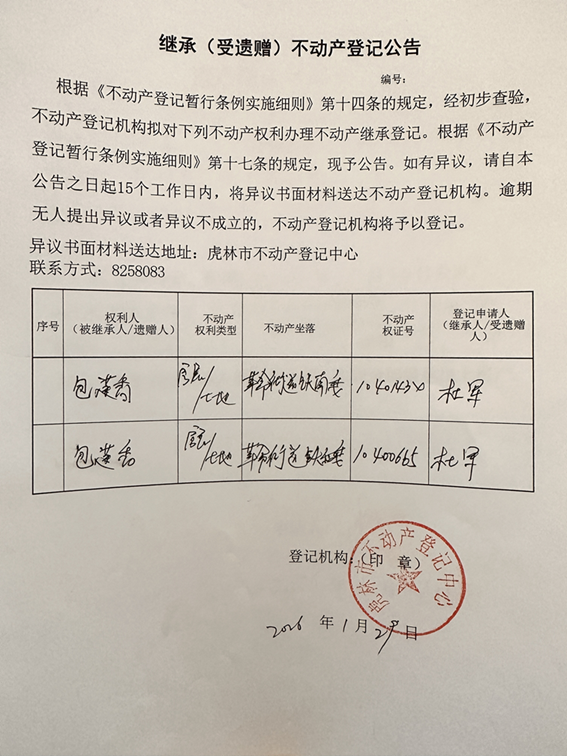 继承（受遗赠）不动产登记公告
编号：
根据《不动产登记暂行条例实施细则》第十四条的规定，经初步查验，
不动产登记机构拟对下列不动产权利办理不动产继承登记。根据《不动产
登记暂行条例实施细则》第十七条的规定，现予公告。如有异议，请自本
公告之日起15个工作日内，将异议书面材料送达不动产登记机构。逾期
无人提出异议或者异议不成立的，不动产登记机构将予以登记。
异议书面材料送达地址：虎林市不动产登记中心
联系方式：8258083
序号 权利人（被继承人/遗赠人） 不动产权利类型 不动产坐落 不动产权证号 登记申请人（继承人/受遗赠人）
包 房屋/土地 革命街道铁南委 杜军
包 房屋/土地 革命街道铁南委 10400665 杜军
登记机构：（印 章）
虎林市不动产登记中心
2026 年 1 月 29 日